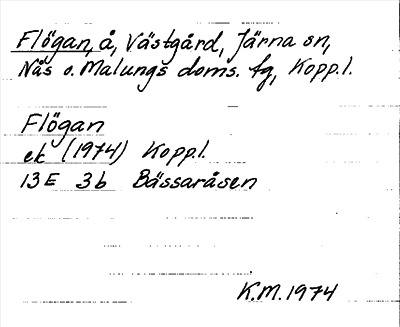 Flögan, å, Västgård, Järna sn,
Nås o. Malungs doms. fg, Kopp.l.
Flögan
ek (1974) Kopp.l.
13E 3b Bässaråsen
K.M. 1974